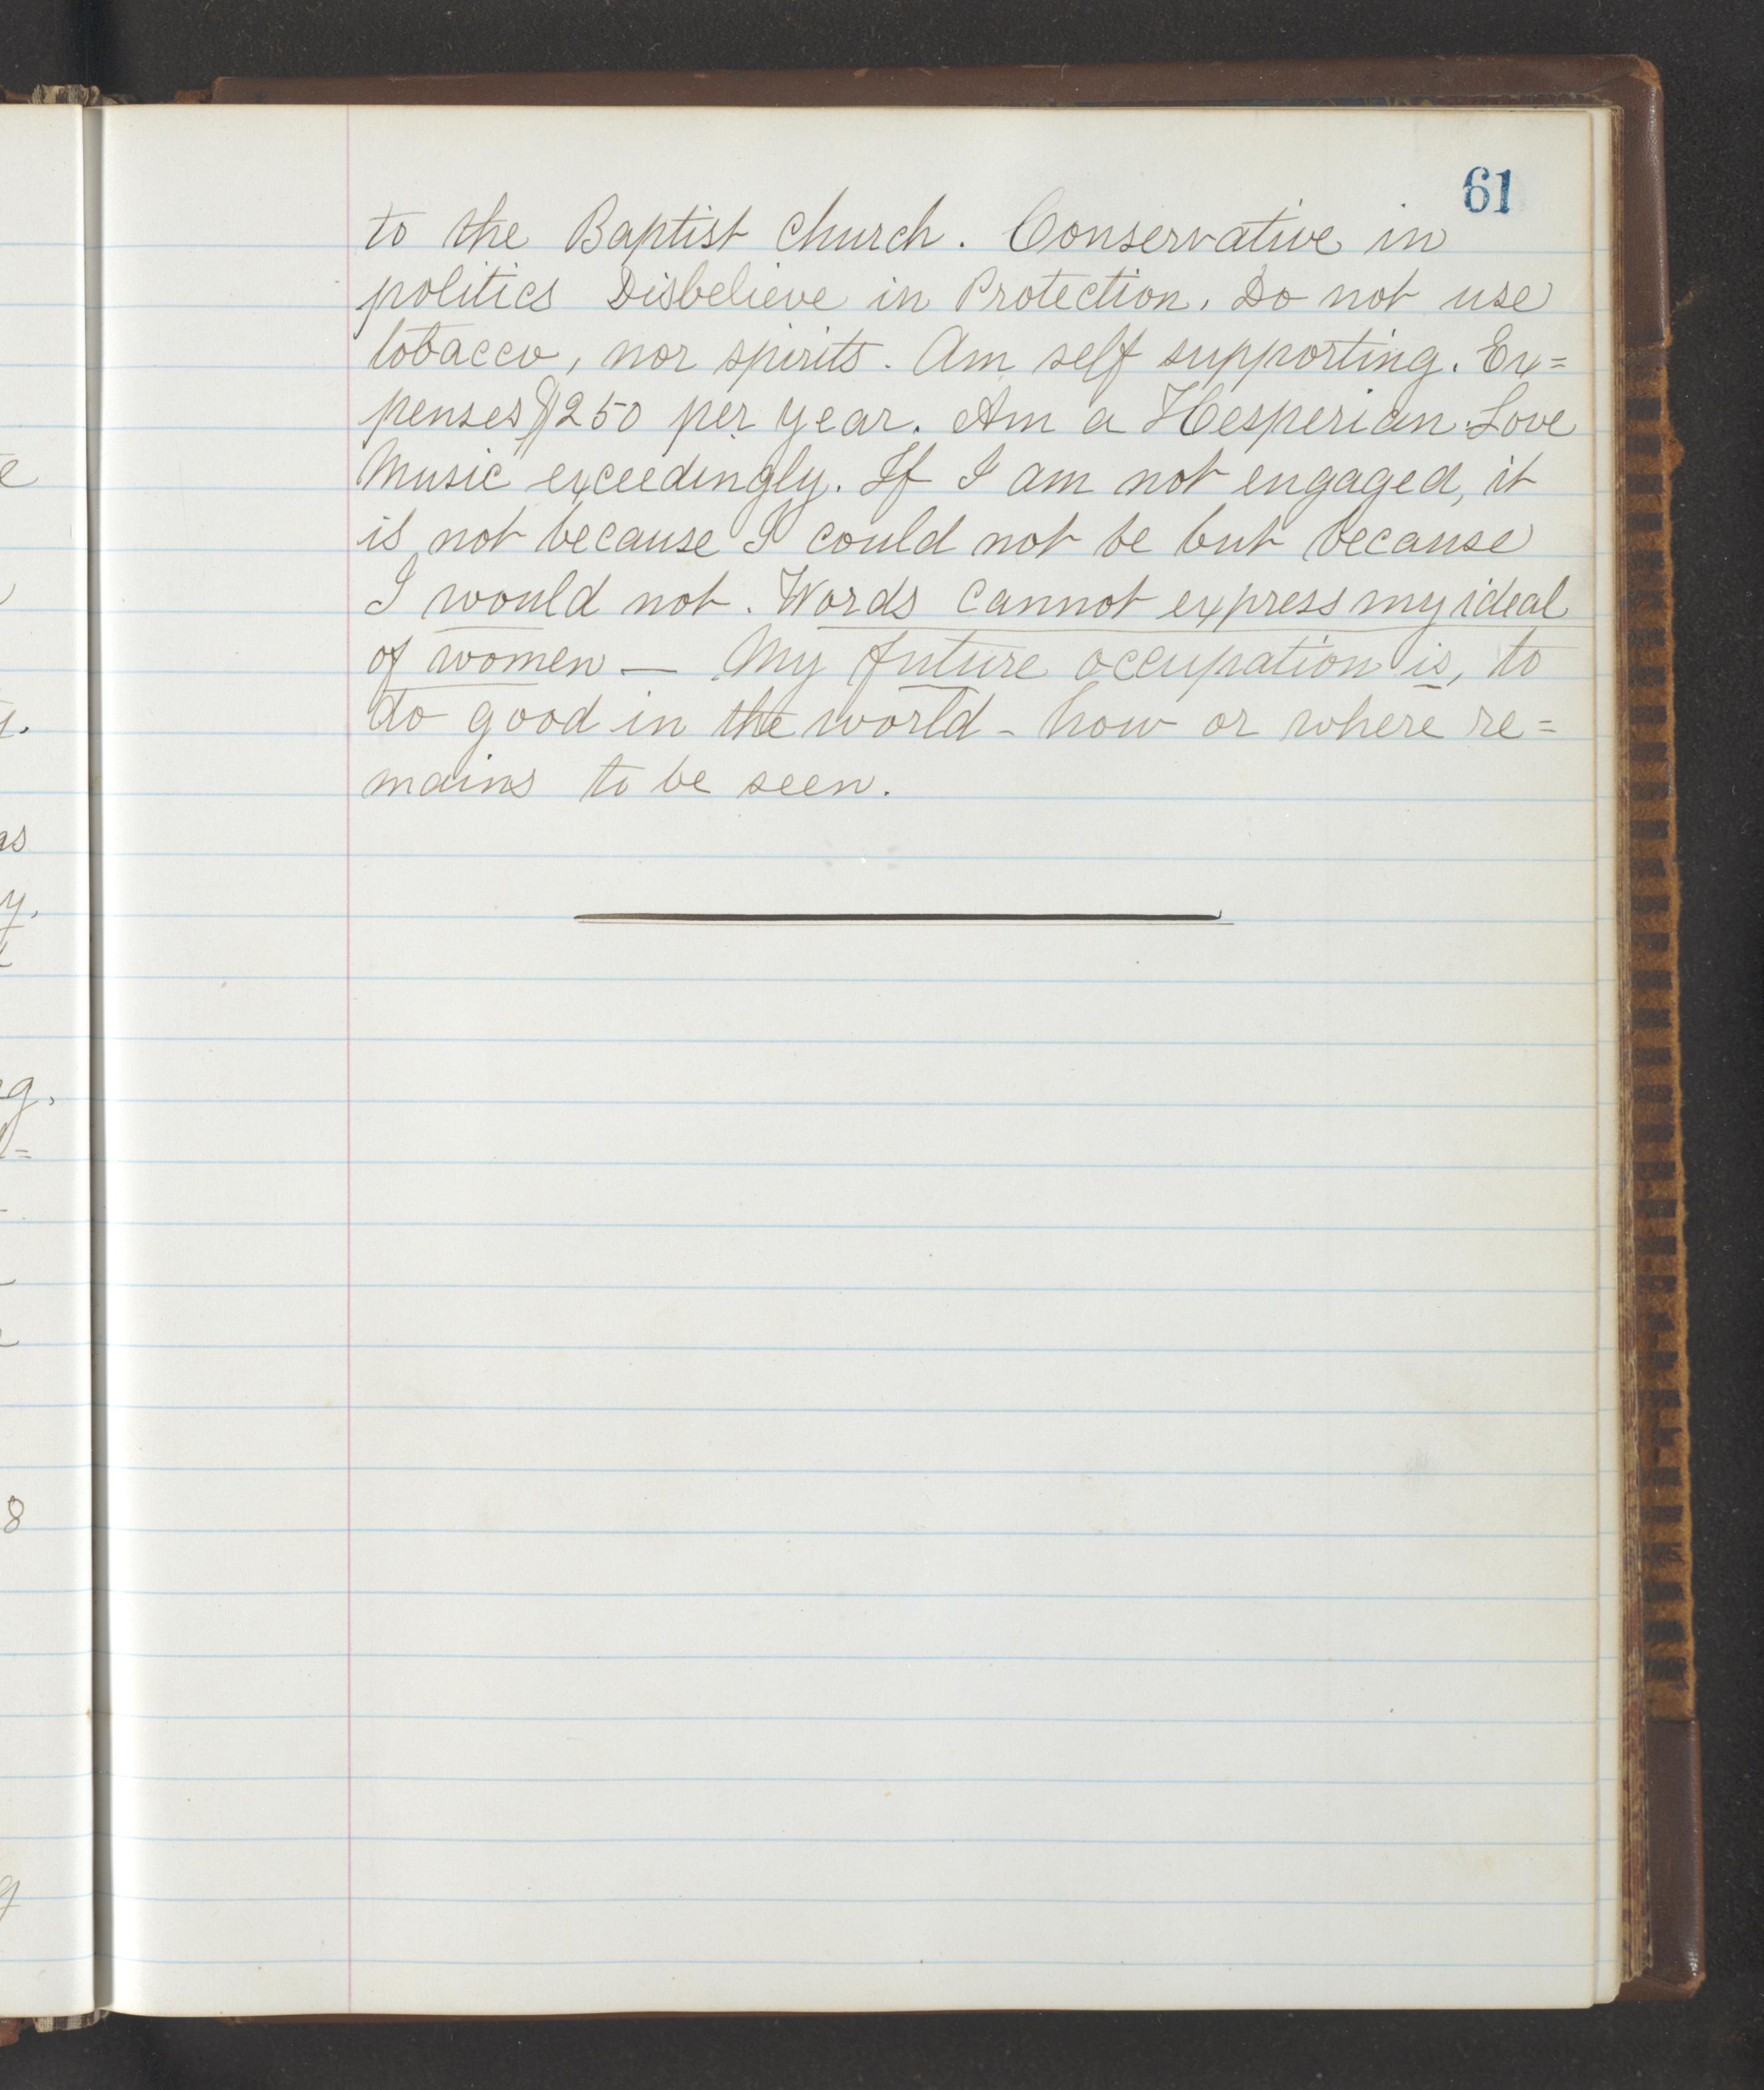 61
to the Baptist Church. Conservative in
politics Disbelieve in Protection. Do not use
tobacco, nor spirits. Am self supporting. Ex=
penses $250 per year. Am a Hesperian. Love
Music exceedingly. If I am not engaged, it
is not because I could not be but because
I would not. Words cannot express my ideal
of women — My future occupation is, to
do good in the world - how or where re=
mains to be seen.